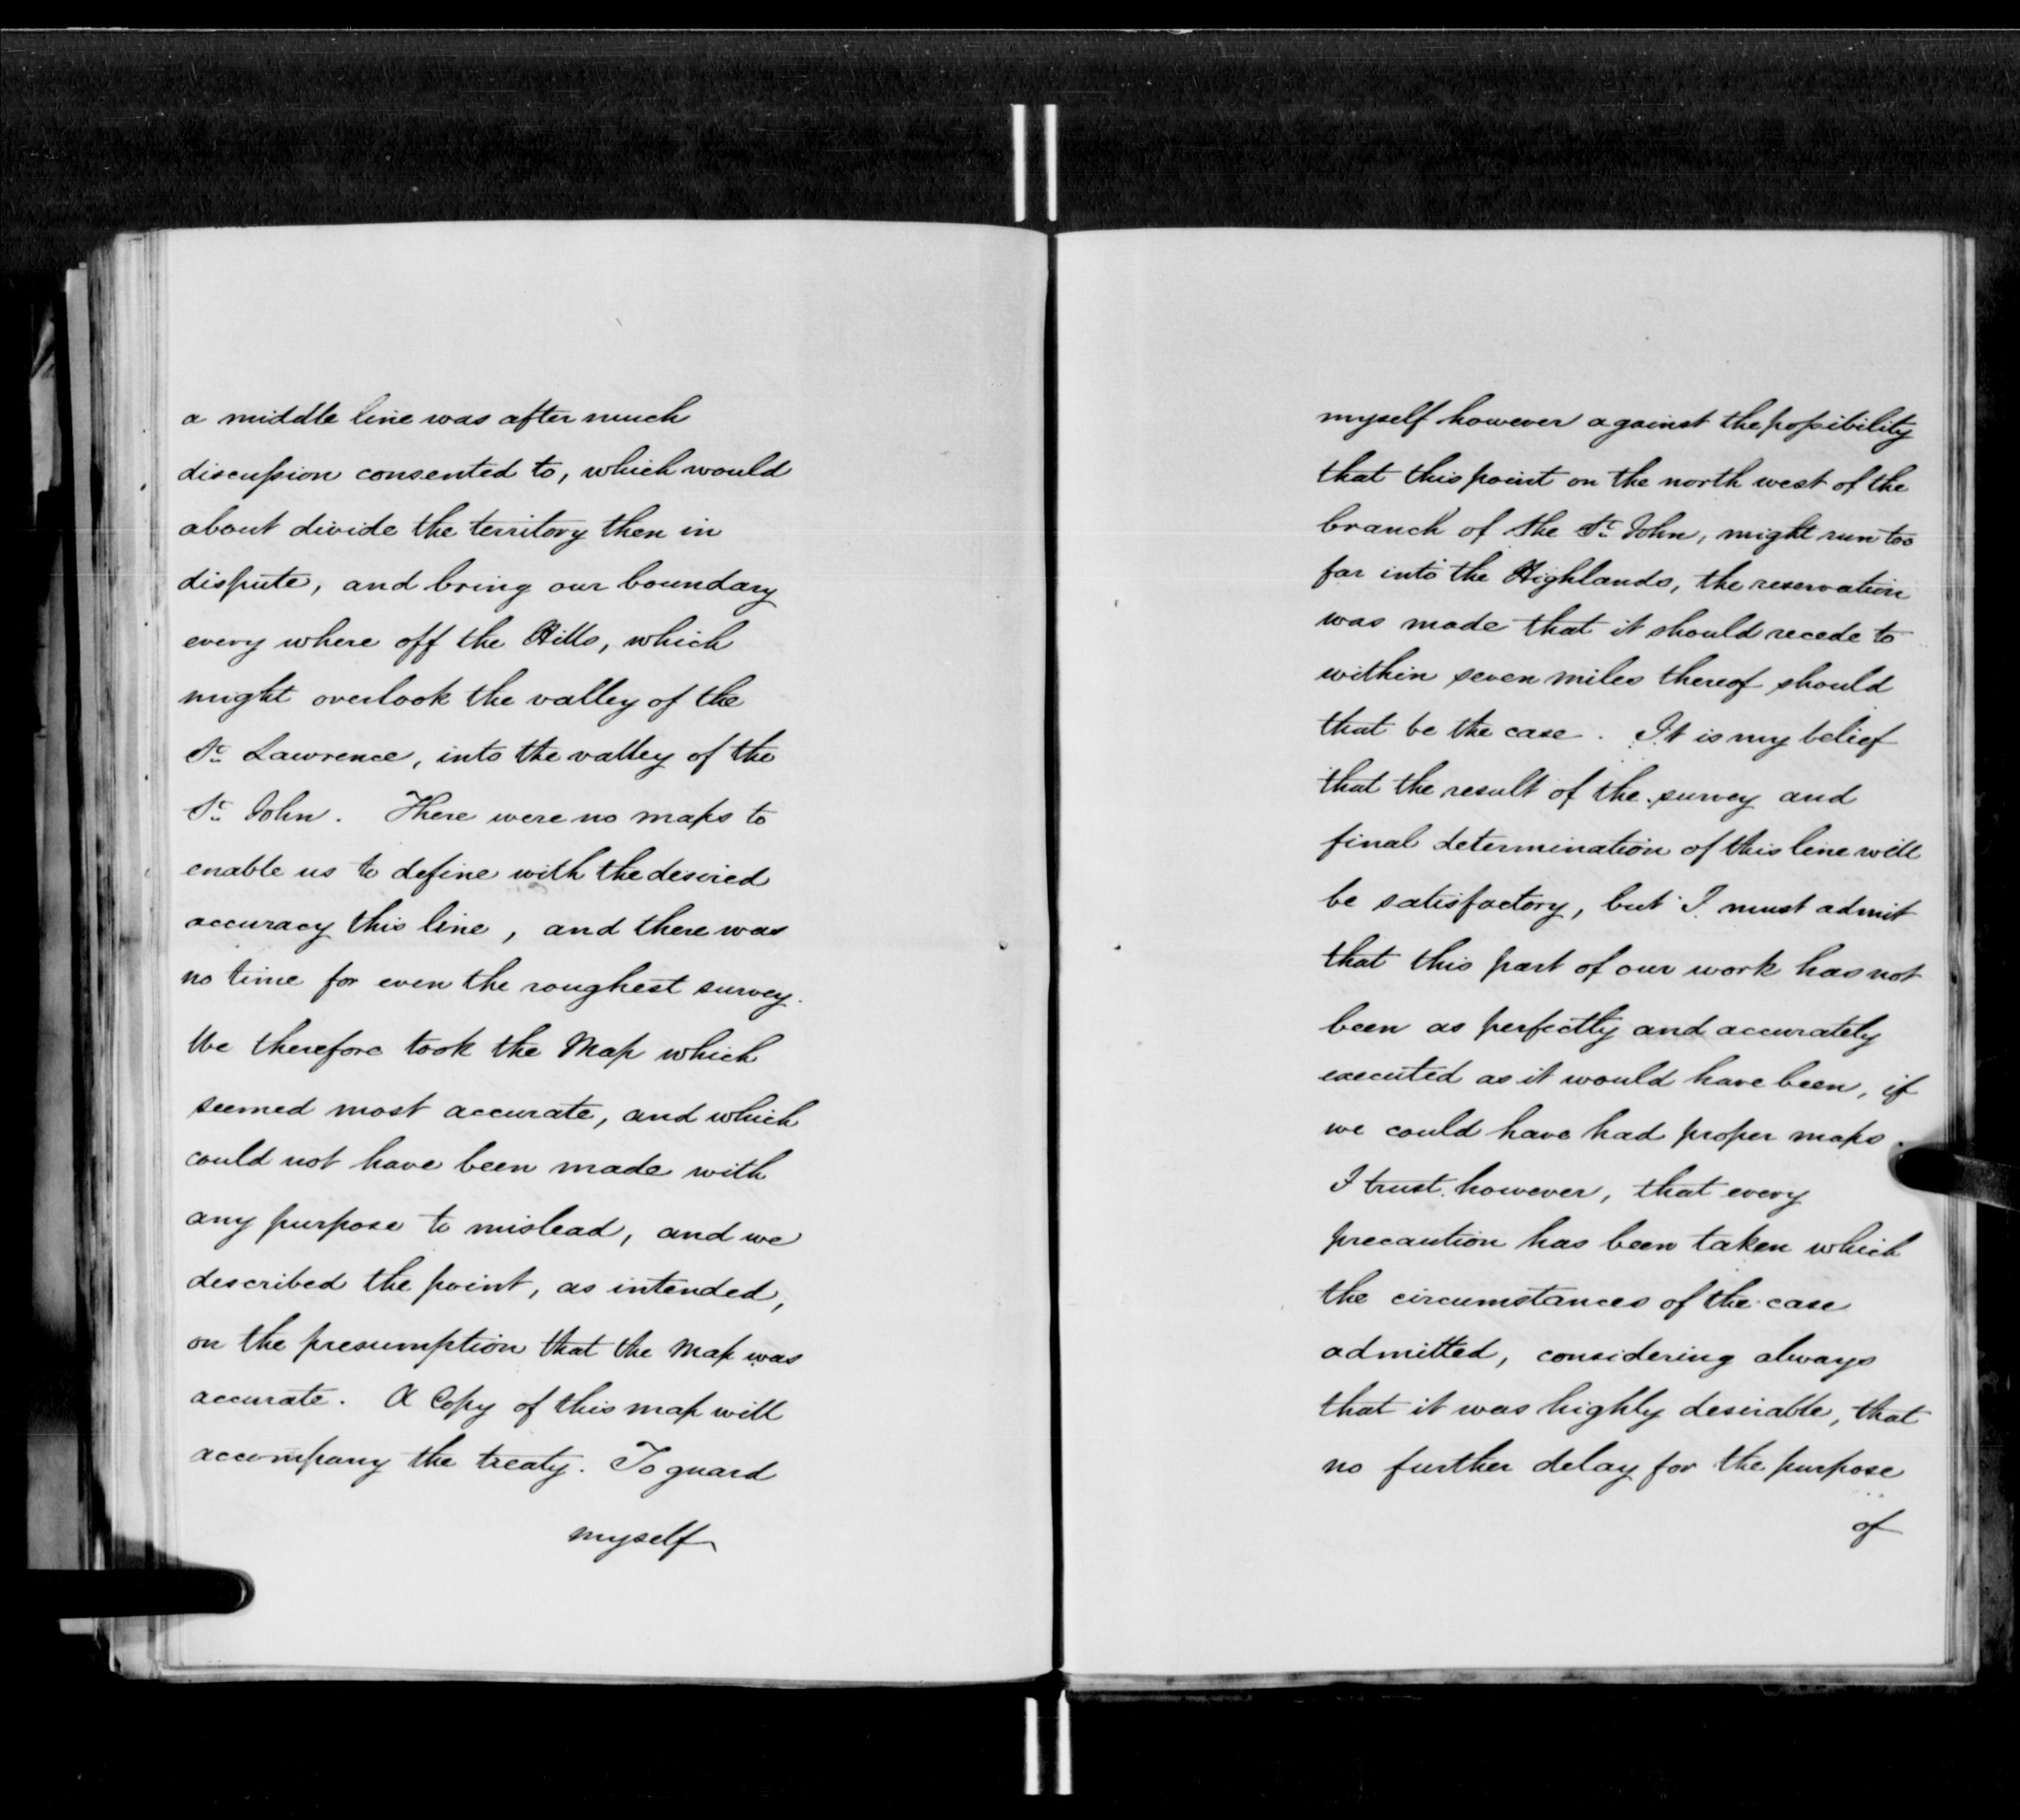 a middle line was after much
discussion consented to, which would
about divide the territory then in
dispute, and bring our boundary
every where off the Hills, which
might overlook the valley of the
St. Lawrence, into the valley of the
St. John. There were no maps to
enable us to define with the desired
accuracy this line, and there was
no time for even the roughest survey.
We therefore took the Map which
seemed most accurate, and which
could not have been made with
any purpose to mislead, and we
described the point, as intended,
on the presumption that the Map was
accurate. A Copy of this map will
accompany the treaty. To guard
myself
myself however against the possibility
that this point on the north west of the
branch of the St. John, might run too
far into the Highlands, the reservation
was made that it should recede to
within seven miles thereof should
that be the case. It is my belief
that the result of the survey and
final determination of this line will
be satisfactory, but I must admit
that this part of our work has not
been as perfectly and accurately
executed as it would have been, if
we could have had proper maps.
I trust however, that every
precaution has been taken which
the circumstances of the case
admitted, considering always
that it was highly desirable, that
no further delay for the purpose
of